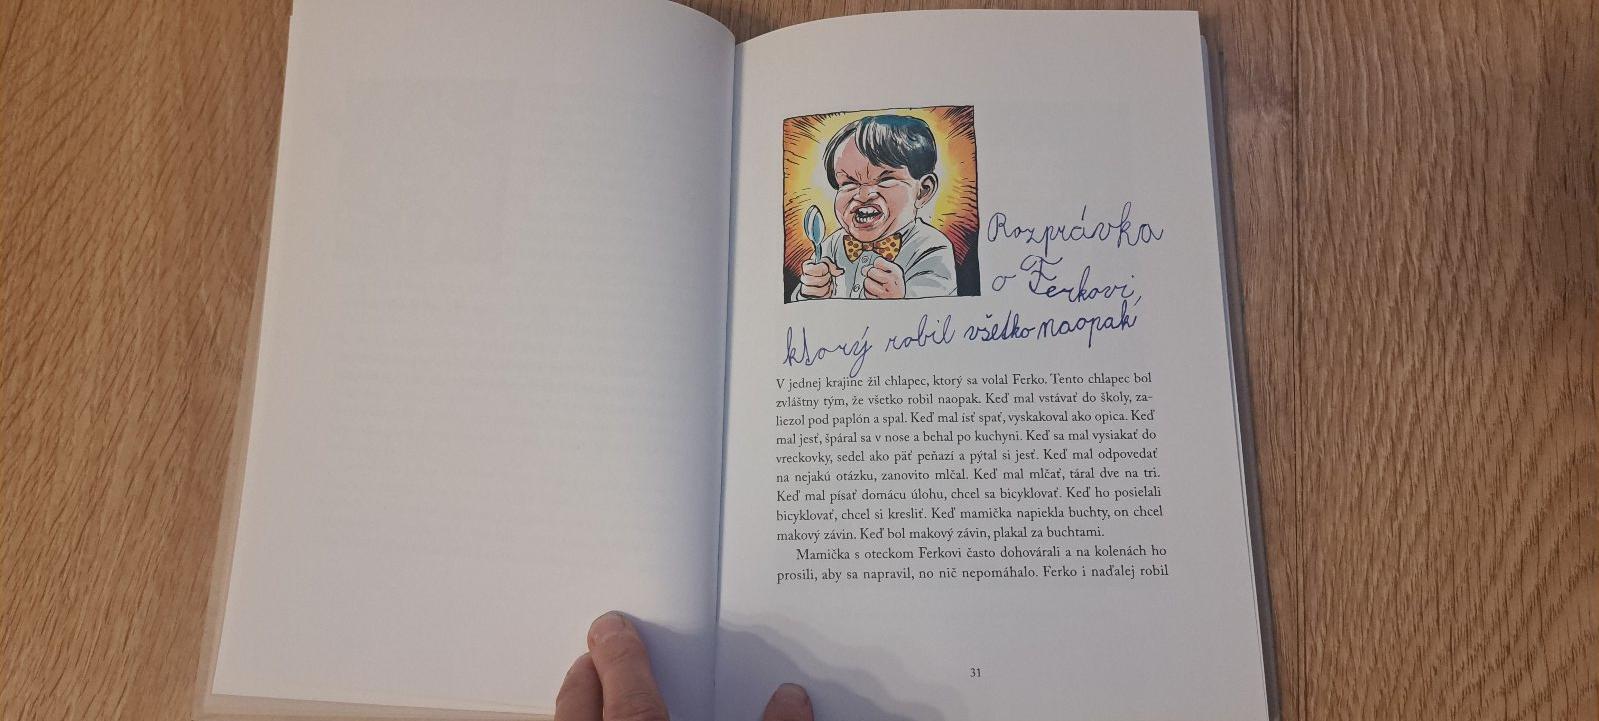 Rozprávka
o Ferkovi,
ktorý robil všetko naopak
V jednej krajine žil chlapec, ktorý sa volal Ferko. Tento chlapec bol
zvláštny tým, že všetko robil naopak. Keď mal vstávať do školy, za-
liezol pod paplón a spal. Keď mal ísť spať, vyskakoval ako opica. Keď
mal jesť, špáral sa v nose a behal po kuchyni. Keď sa mal vysiakať do
vreckovky, sedel ako päť peňazí a pýtal si jesť. Keď mal odpovedať
na nejakú otázku, zanovito mlčal. Keď mal mlčať, táral dve na tri.
Keď mal písať domácu úlohu, chcel sa bicyklovať. Keď ho posielali
bicyklovať, chcel si kresliť. Keď mamička napiekla buchty, on chcel
makový závin. Keď bol makový závin, plakal za buchtami.
Mamička s oteckom Ferkovi často dohovárali a na kolenách ho
prosili, aby sa napravil, no nič nepomáhalo. Ferko i naďalej robil
31